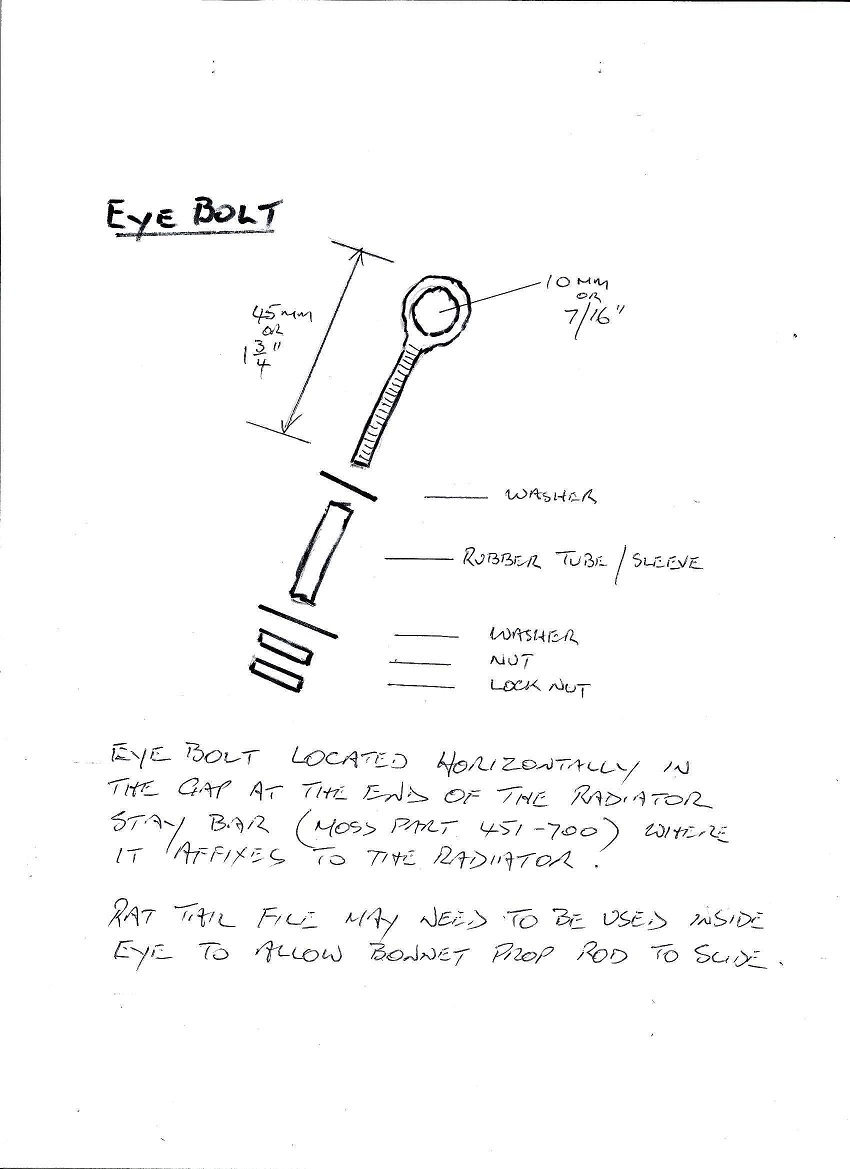 EYE BOLT
10 MM
OR
7/16"
45 MM
OR
1 3/4"
WASHER
RUBBER TUBE / SLEEVE
WASHER
NUT
LOCK NUT
EYE BOLT LOCATED HORIZONTALLY IN
THE GAP AT THE END OF THE RADIATOR
STAY BAR (MOSS PART 451-700) WHERE
IT AFFIXES TO THE RADIATOR.
RAT TAIL FILE MAY NEED TO BE USED INSIDE
EYE TO ALLOW BONNET PROP ROD TO SLIDE.